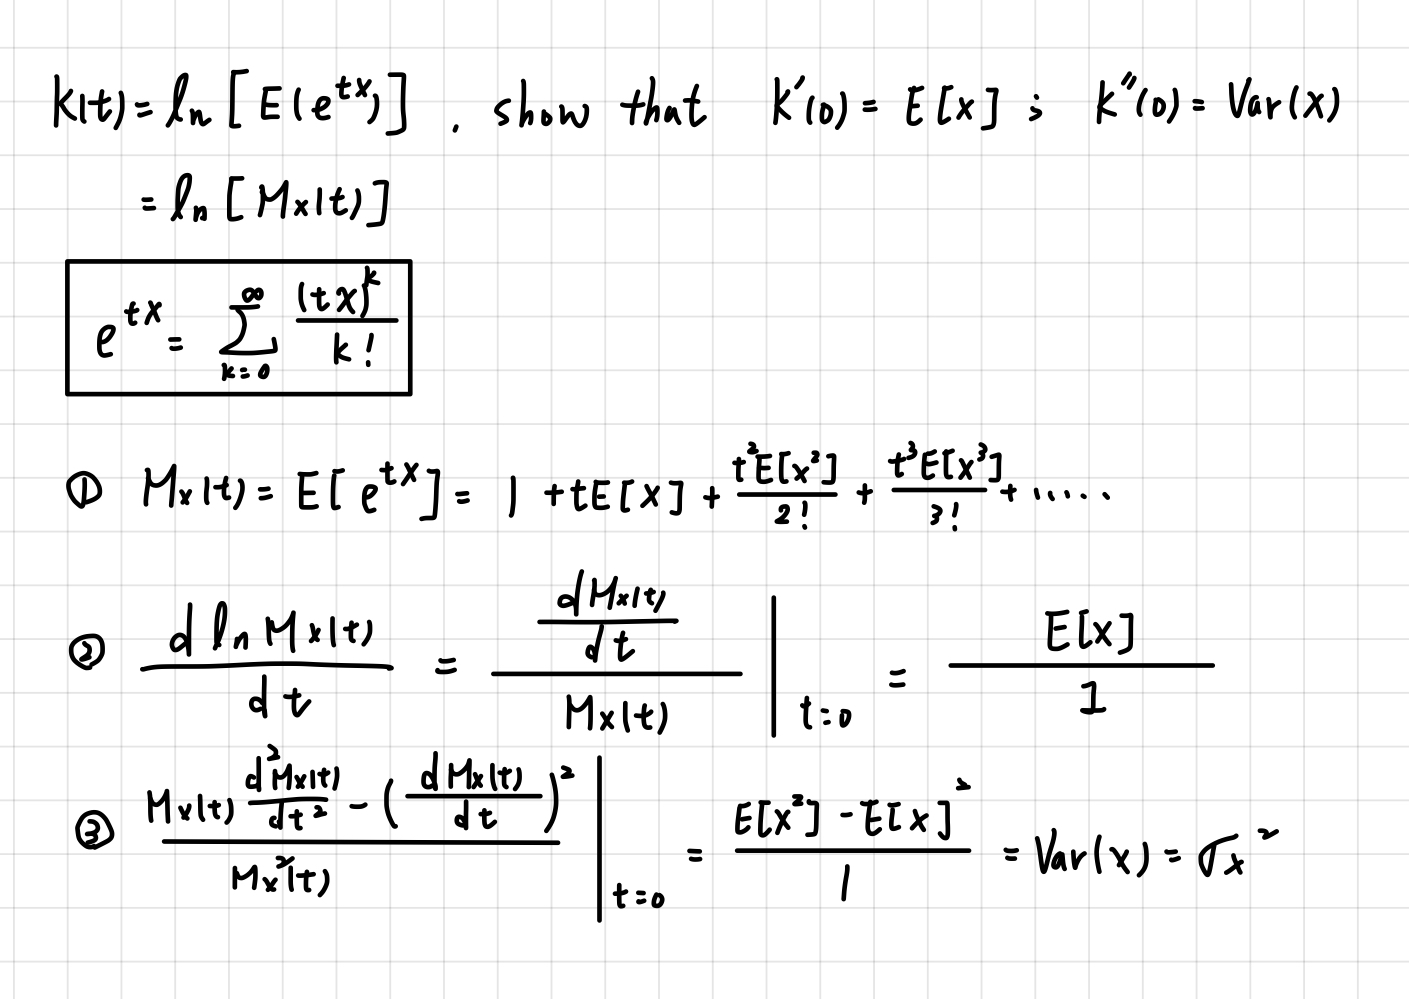 K(t) = ln [E(e^{tx})] . show that K'(0) = E[x] ; K''(0) = Var(x)
= ln [M_x(t)]
e^{tx} = \sum_{k=0}^{∞} \frac{(tx)^k}{k!}
① M_x(t) = E[e^{tx}] = 1 + tE[x] + \frac{t^2E[x^2]}{2!} + \frac{t^3E[x^3]}{3!} + .....
② \frac{d ln M_x(t)}{dt} = \frac{\frac{dM_x(t)}{dt}}{M_x(t)} |_{t=0} = \frac{E[x]}{1}
③ \frac{M_x(t) \frac{d^2M_x(t)}{dt^2} - (\frac{dM_x(t)}{dt})^2}{M_x^2(t)} |_{t=0} = \frac{E[x^2] - E[x]^2}{1} = Var(x) = σ_x^2